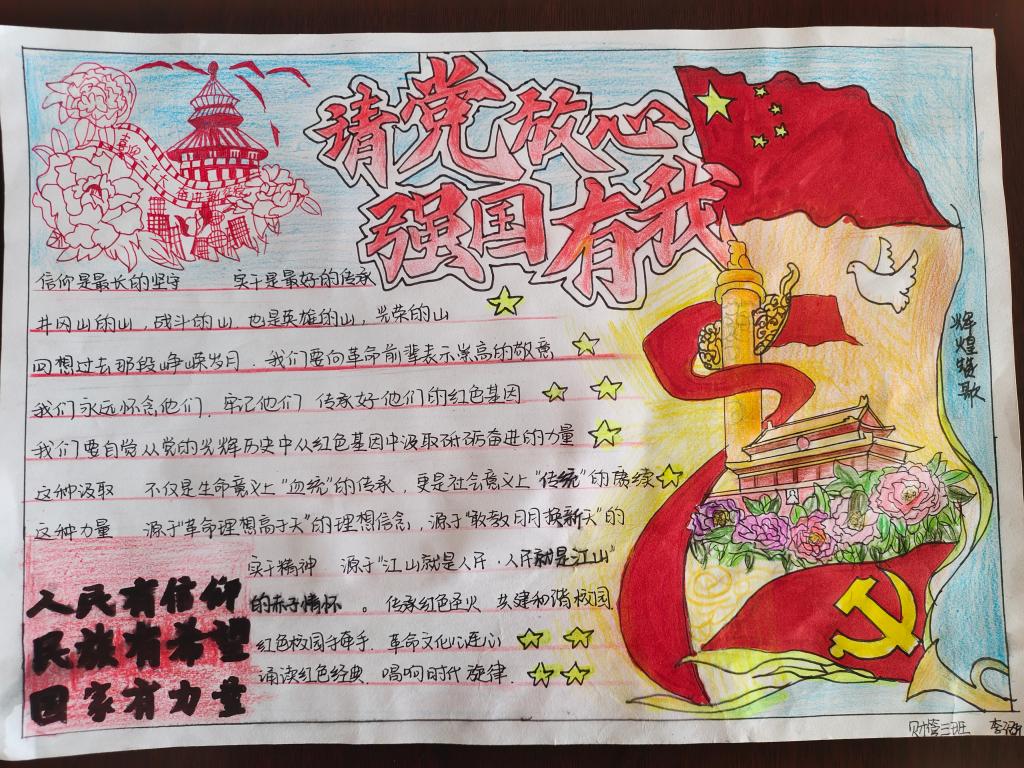 请党放心
强国有我
信仰是最长的坚守 实干是最好的传承
井冈山的山,战斗的山,也是英雄的山,光荣的山
回想过去那段峥嵘岁月,我们要向革命前辈表示崇高的敬意
我们永远怀念他们,牢记他们 传承好他们的红色基因
我们要自觉从党的光辉历史中从红色基因中汲取砥砺奋进的力量
这种汲取 不仅是生命意义上"血统"的传承,更是社会意义上"传统"的赓续
这种力量 源于"革命理想高于天"的理想信念,源于"敢教日月换新天"的
实干精神 源于"江山就是人民,人民就是江山"
的赤子情怀。传承红色圣火 共建和谐校园
红色校园手牵手,革命文化心连心
诵读红色经典,唱响时代旋律.
人民有信仰
民族有希望
国家有力量
辉煌赞歌
财管三班 李